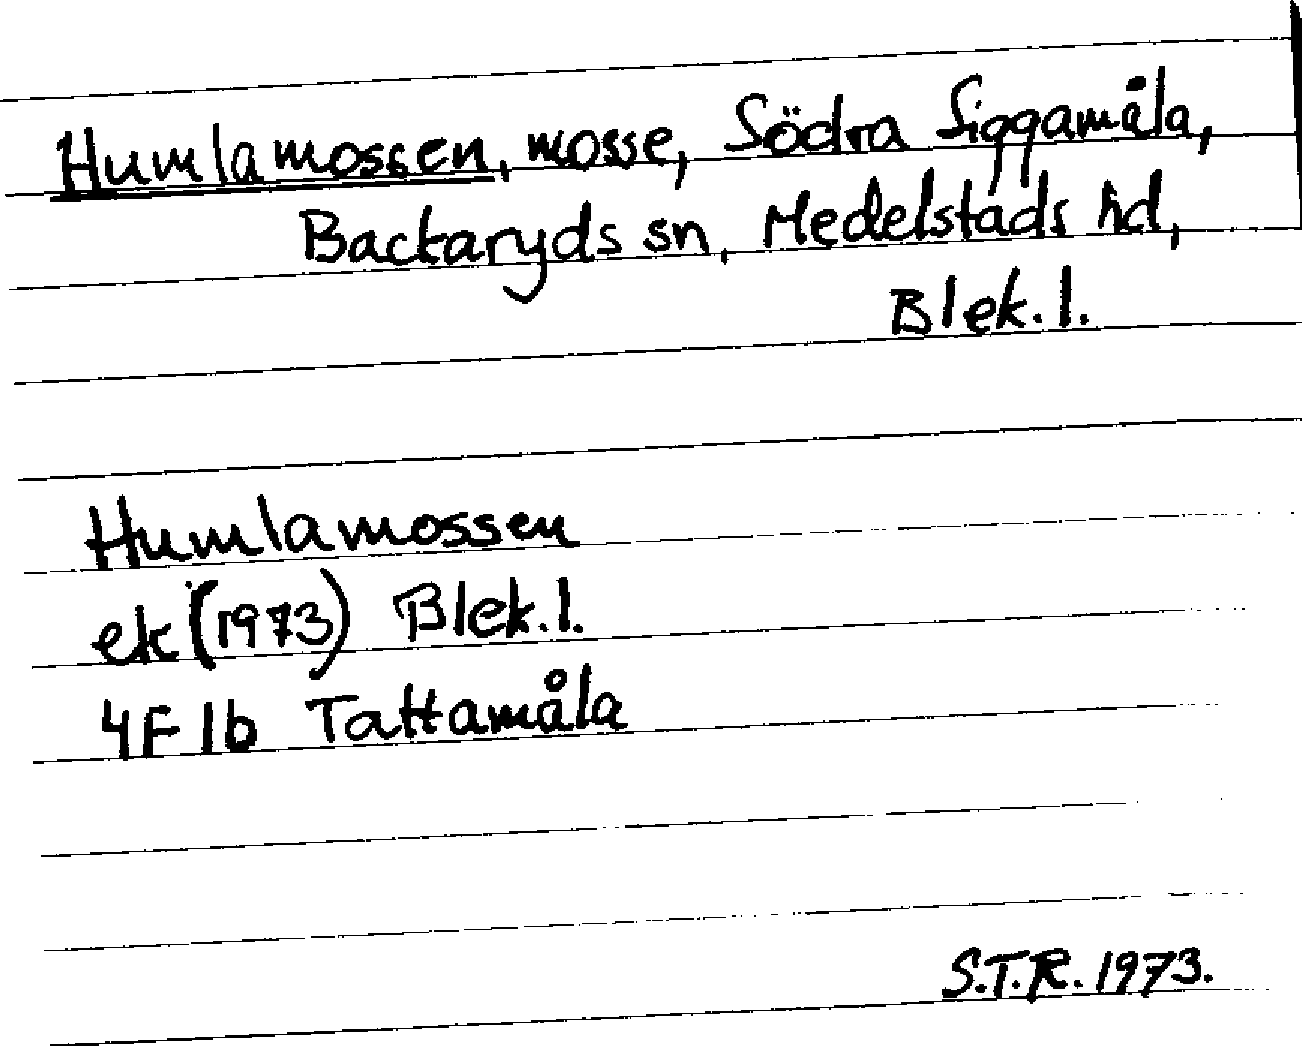 Humlamossen, mosse, Södra Siggamåla,
Backaryds sn, Medelstads hd,
Blek. l.
Humlamossen
ek (1973) Blek. l.
4F 1b Tattamåla
S.T.R. 1973.